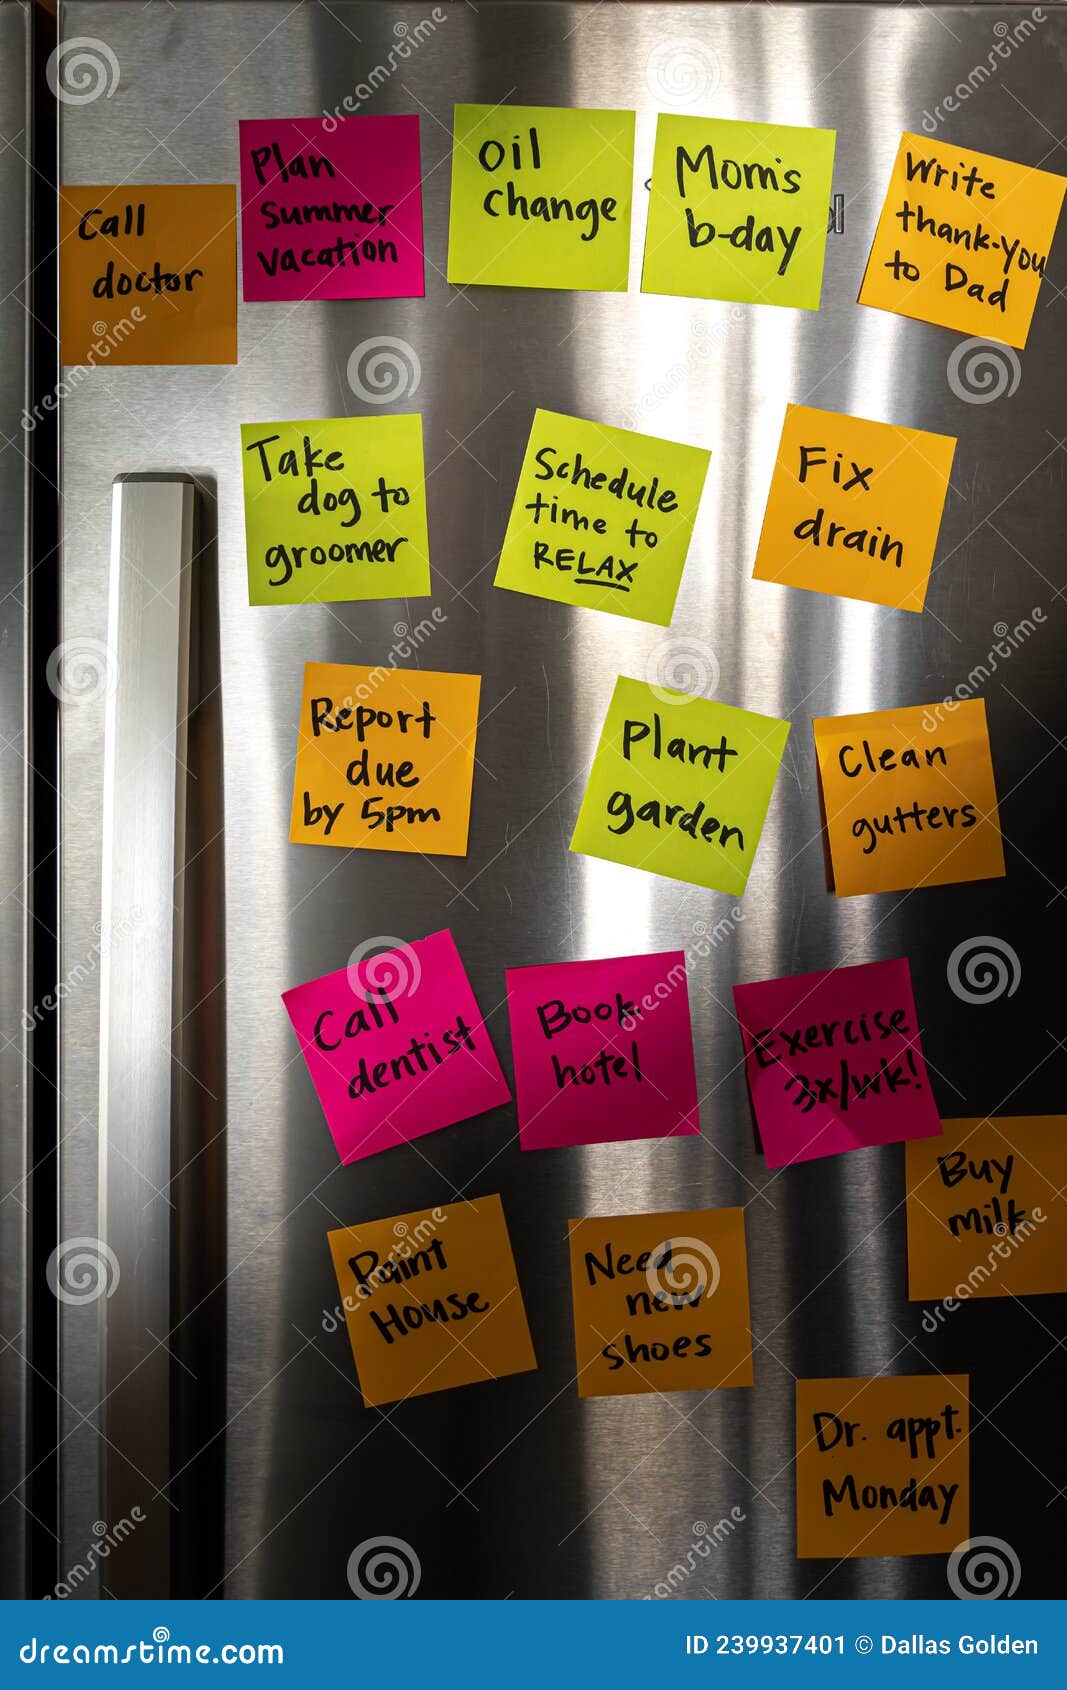 Call
doctor
Plan
summer
vacation
Oil
change
Mom's
b-day
Write
thank-you
to Dad
Take
dog to
groomer
Schedule
time to
RELAX
Fix
drain
Report
due
by 5pm
Plant
garden
Clean
gutters
Call
dentist
Book
hotel
Exercise
3x/wk!
Buy
milk
Paint
House
Need
new
shoes
Dr. appt.
Monday
dreamstime
dreamstime.com
ID 239937401 © Dallas Golden